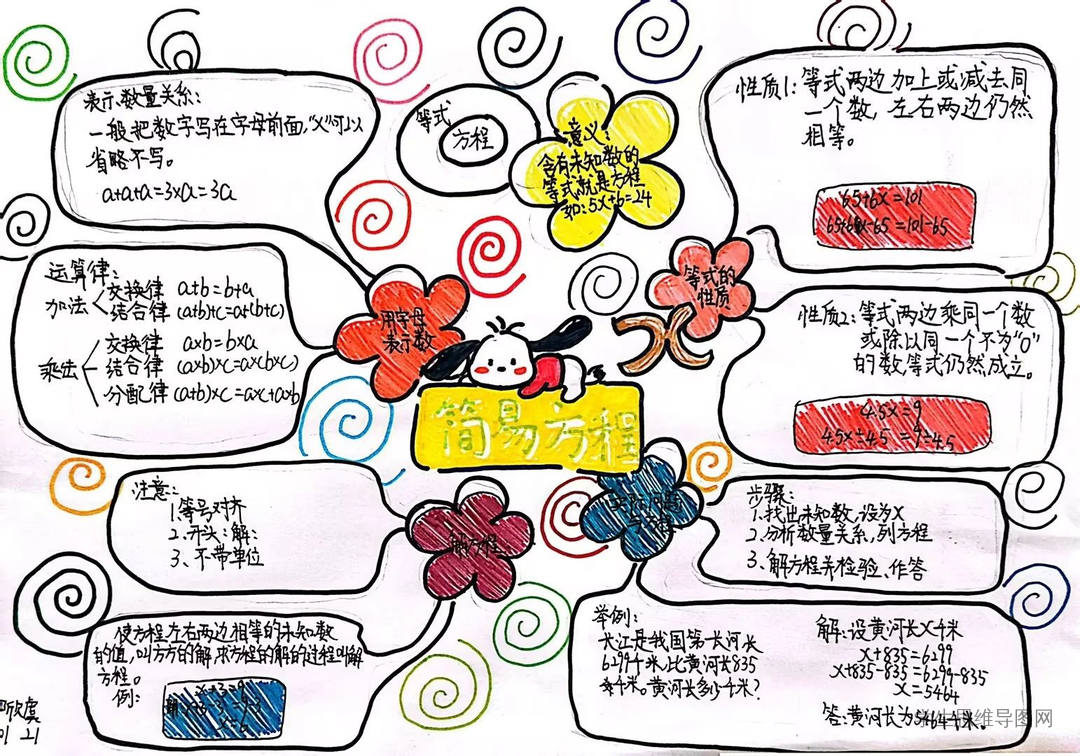 表示数量关系：
一般把数字写在字母前面，"×"可以
省略不写。
a+a+a=3×a=3a
等式
方程
意义：
含有未知数的
等式就是方程
如：5x+6=24
性质1：等式两边加上或减去同
一个数，左右两边仍然
相等。
65+6x=101
65+6x-65=101-65
运算律：
加法
交换律 a+b=b+a
结合律 (a+b)+c=a+(b+c)
乘法
交换律 a×b=b×a
结合律 (a×b)×c=a×(b×c)
分配律 (a+b)×c=a×c+a×b
用字母
表示数
等式的
性质
性质2：等式两边乘同一个数
或除以同一个不为"0"
的数等式仍然成立。
4.5x=9
4.5x÷4.5=9÷4.5
简易方程
注意：
1.等号对齐
2.开头：解：
3、不带单位
解方程
实际问题
与方程
步骤：
1.找出未知数，设为X
2.分析数量关系，列方程
3、解方程并检验、作答
使方程左右两边相等的未知数
的值，叫方方的解，求方程的解的过程叫解
方程。
例：
x+3=9
x=6
举例：
长江是我国第一长河长
6299千米，比黄河长835
千米。黄河长多少千米？
解：设黄河长X千米
x+835=6299
x+835-835=6299-835
x=5464
答：黄河长为5464千米。
01 21
思维导图网